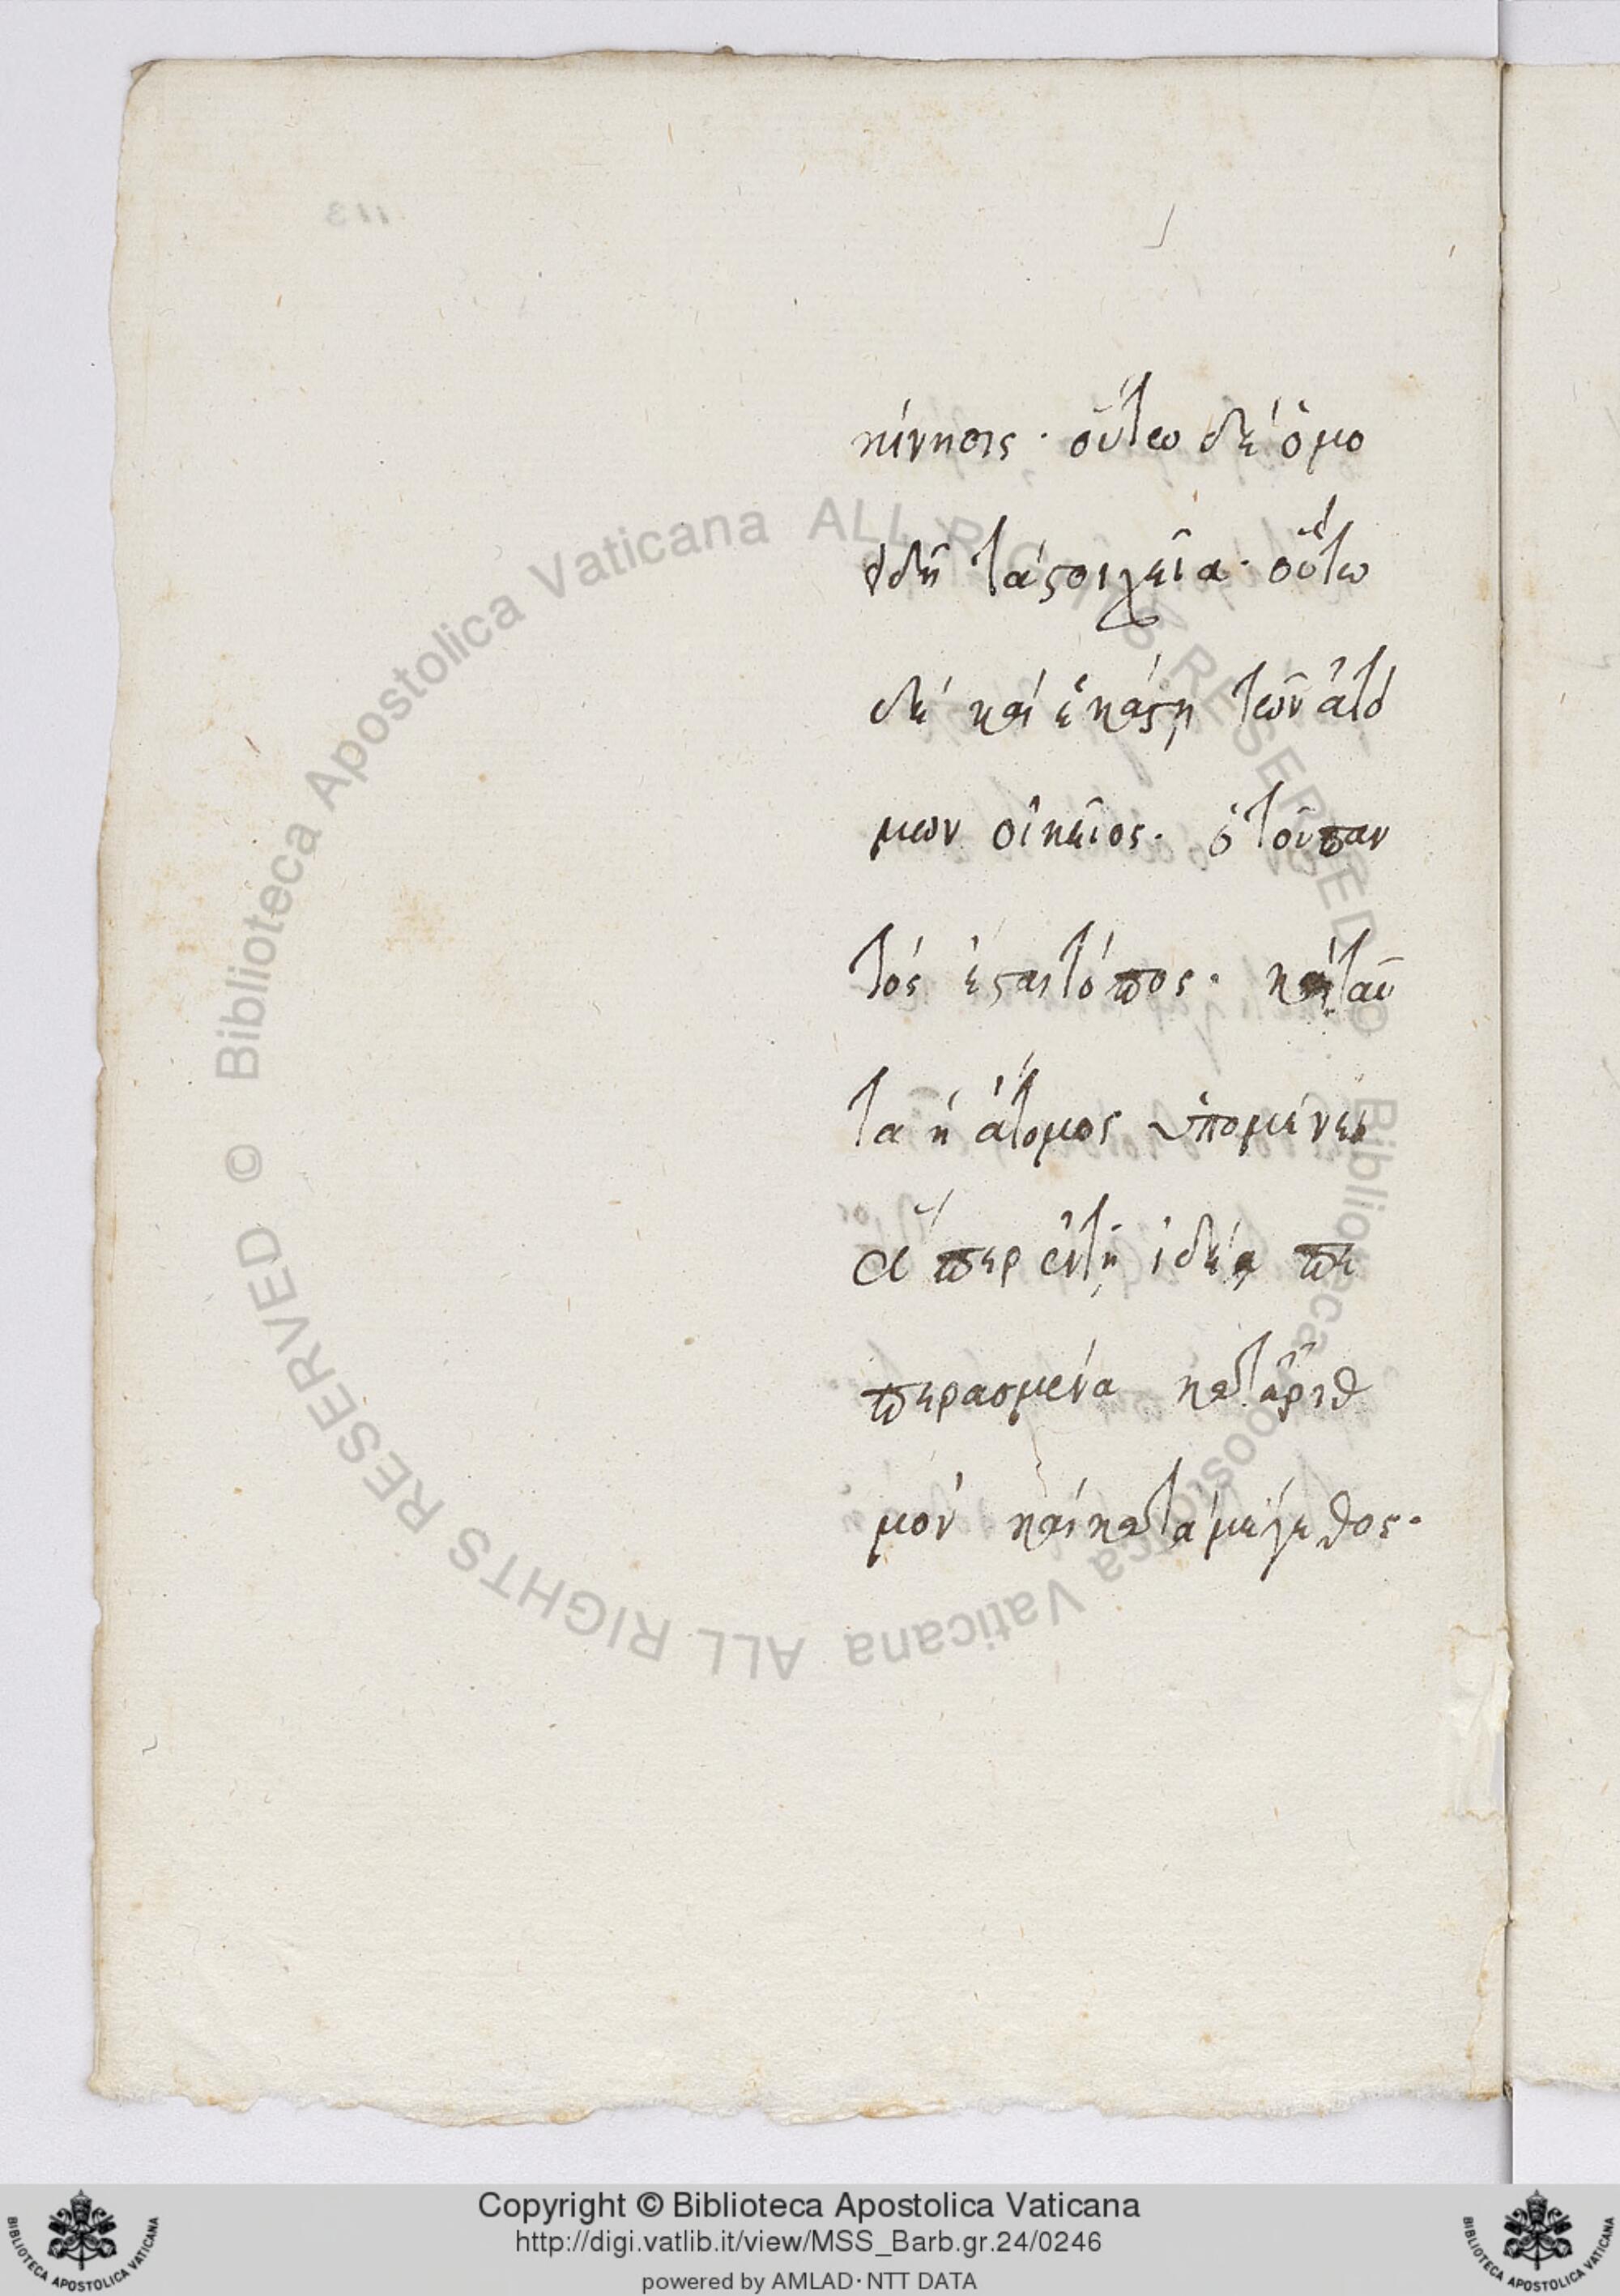 κίνησις · οὕτω δὲ ὁμο
ειδῆ τὰ στοιχεῖα · οὕτω
δὲ καὶ ἑκάστη τῶν ἀτό
μων οἰκεῖος · ὁ τοῦ παν
τὸς ἐσαι τόπος · καὶ ταῦ
τα ἡ ἄτομος ὑπομένει
ἅπερ ἐν τῇ ἰδέᾳ πε
περασμένα κατ' ἀριθ
μὸν καὶ κατὰ μέγεθος ·
© Biblioteca Apostolica Vaticana ALL RIGHTS RESERVED
© Biblioteca Apostolica Vaticana ALL RIGHTS RESERVED
Copyright © Biblioteca Apostolica Vaticana
http://digi.vatlib.it/view/MSS_Barb.gr.24/0246
powered by AMLAD · NTT DATA
BIBLIOTECA APOSTOLICA VATICANA
BIBLIOTECA APOSTOLICA VATICANA